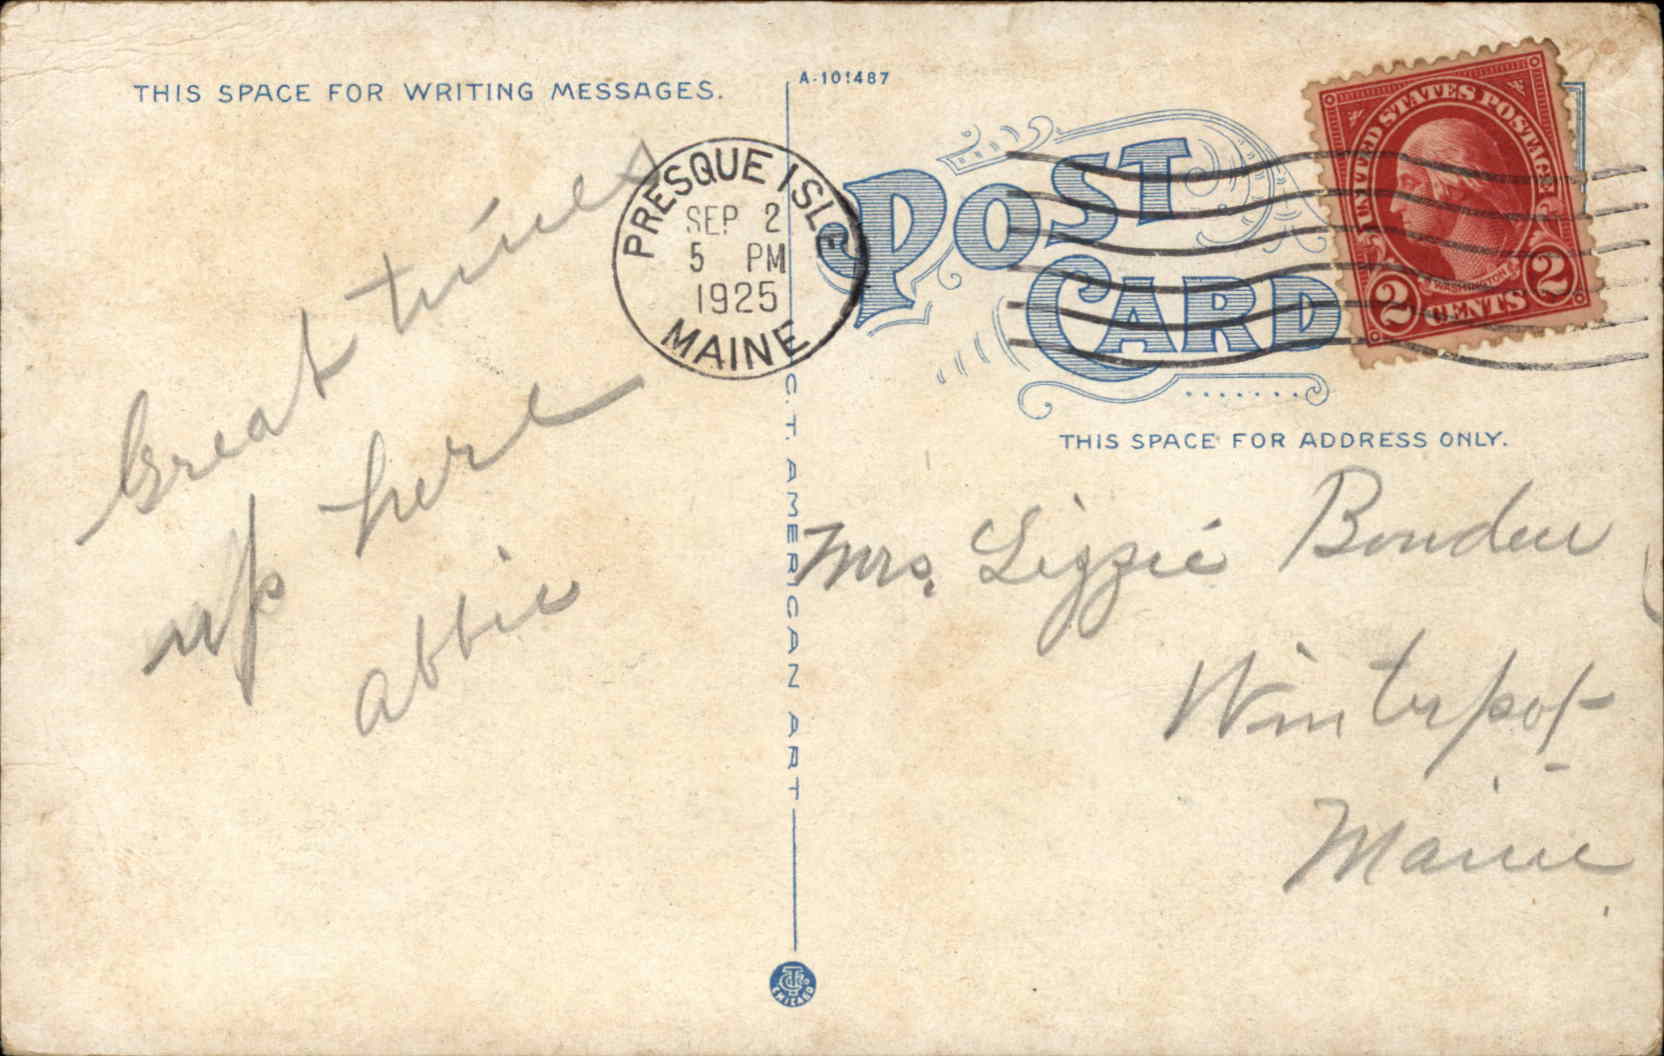 THIS SPACE FOR WRITING MESSAGES.
A-101487
PRESQUE ISLE
SEP 2
5 PM
1925
MAINE
POST
CARD
UNITED STATES POSTAGE
WASHINGTON
2 CENTS 2
THIS SPACE FOR ADDRESS ONLY.
Great times
up here
Abbie
C.T. AMERICAN ART
Mrs. Lizzie Bowden
Winterport
Maine
CHICAGO